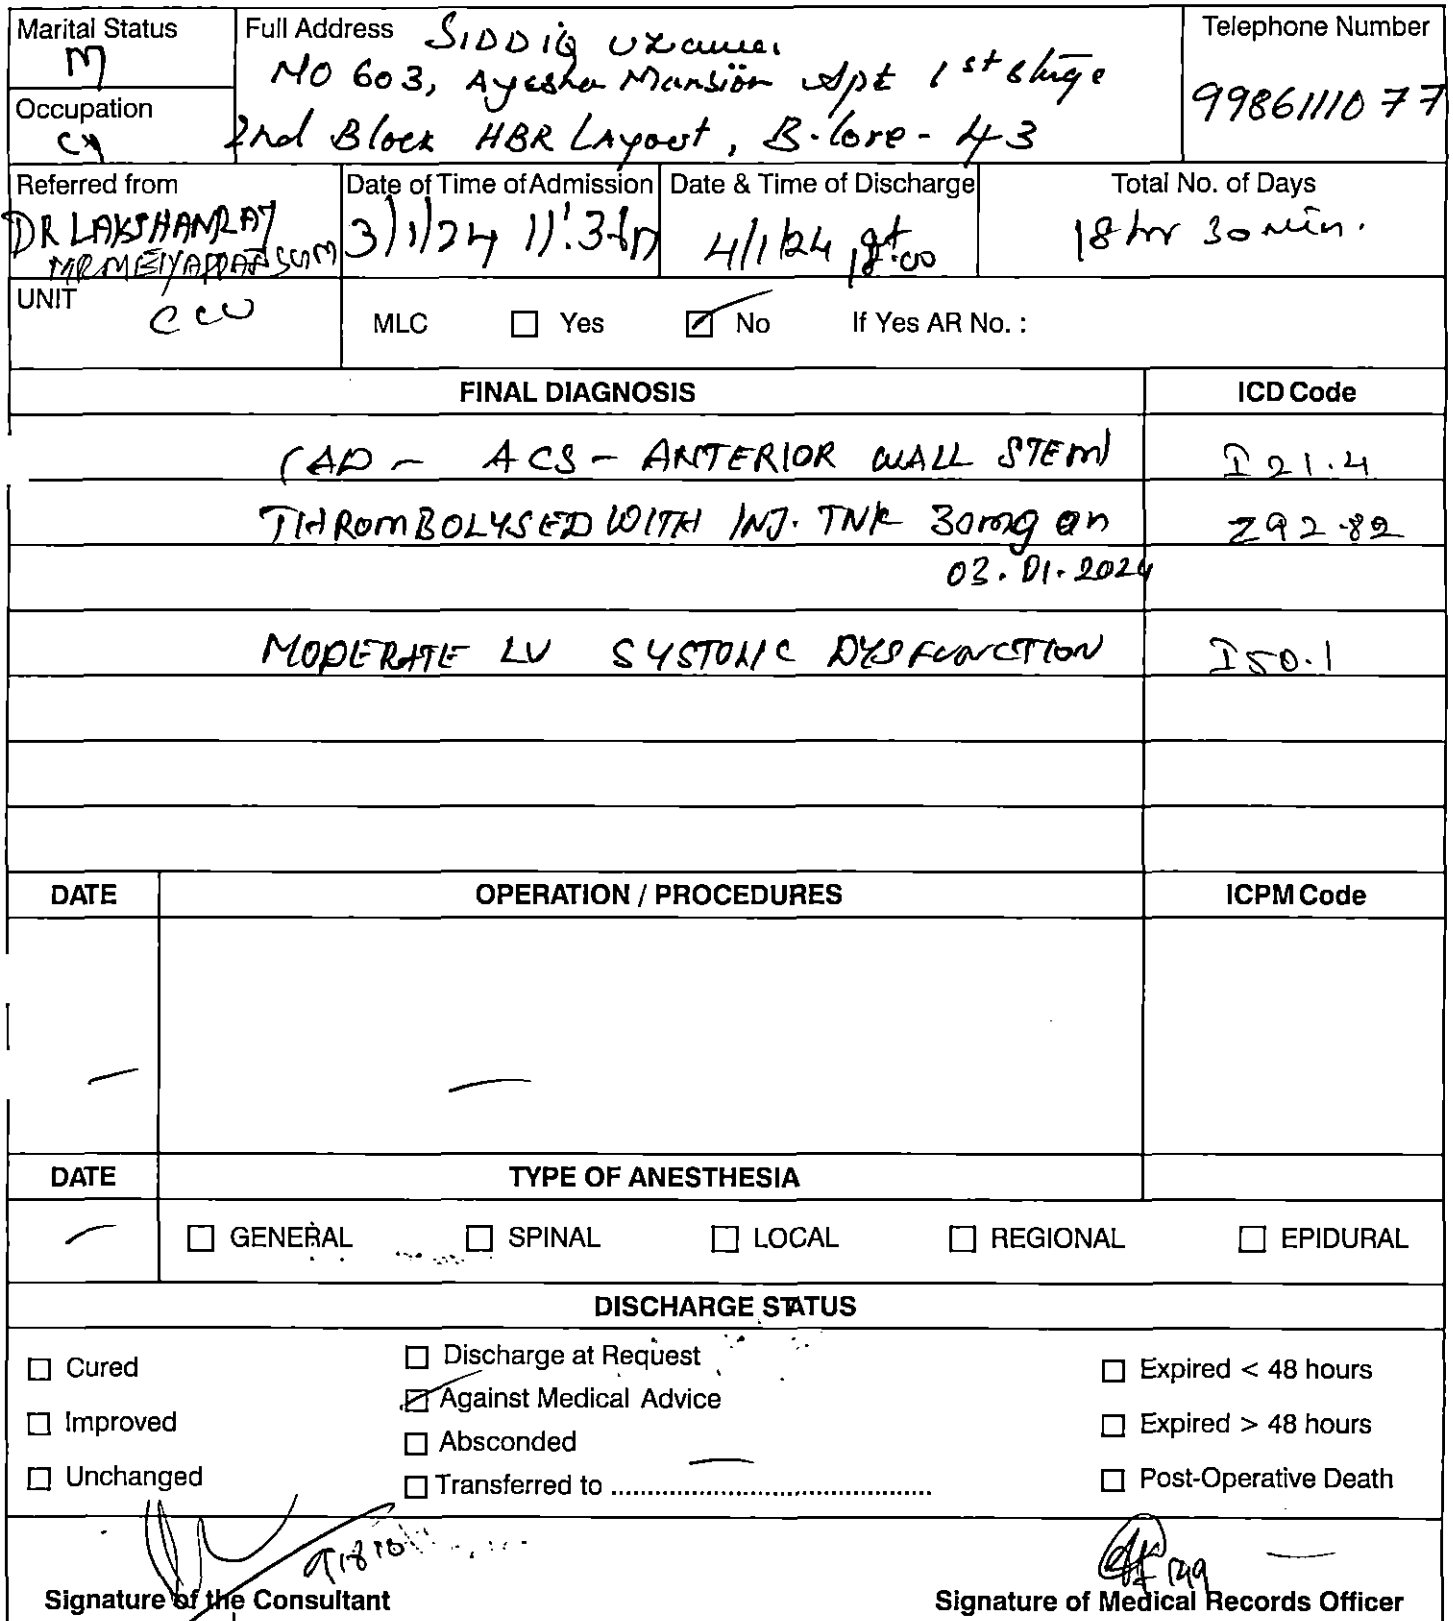 Marital Status
M
Full Address SIDDIQ
NO 603, Ayesha Mansion Apt 1st stage
2nd Block HBR Layout, B-lore - 43
Telephone Number
9986111077
Occupation
Referred from
DR LAKSHANRAJ
Date of Time of Admission
3/1/24
Date & Time of Discharge
4/1/24
Total No. of Days
18 hr 30 min.
UNIT
CCU
MLC Yes No If Yes AR No. :
FINAL DIAGNOSIS ICD Code
CAD - ACS - ANTERIOR WALL STEMI I21.4
THROMBOLYSED WITH INJ. TNK 30mg on Z92.82
03.01.2024
MODERATE LV SYSTOLIC DYSFUNCTION I50.1
DATE OPERATION / PROCEDURES ICPM Code
DATE TYPE OF ANESTHESIA
GENERAL SPINAL LOCAL REGIONAL EPIDURAL
DISCHARGE STATUS
Cured
Improved
Unchanged
Discharge at Request
Against Medical Advice
Absconded
Transferred to ........................................
Expired < 48 hours
Expired > 48 hours
Post-Operative Death
Signature of the Consultant
Signature of Medical Records Officer